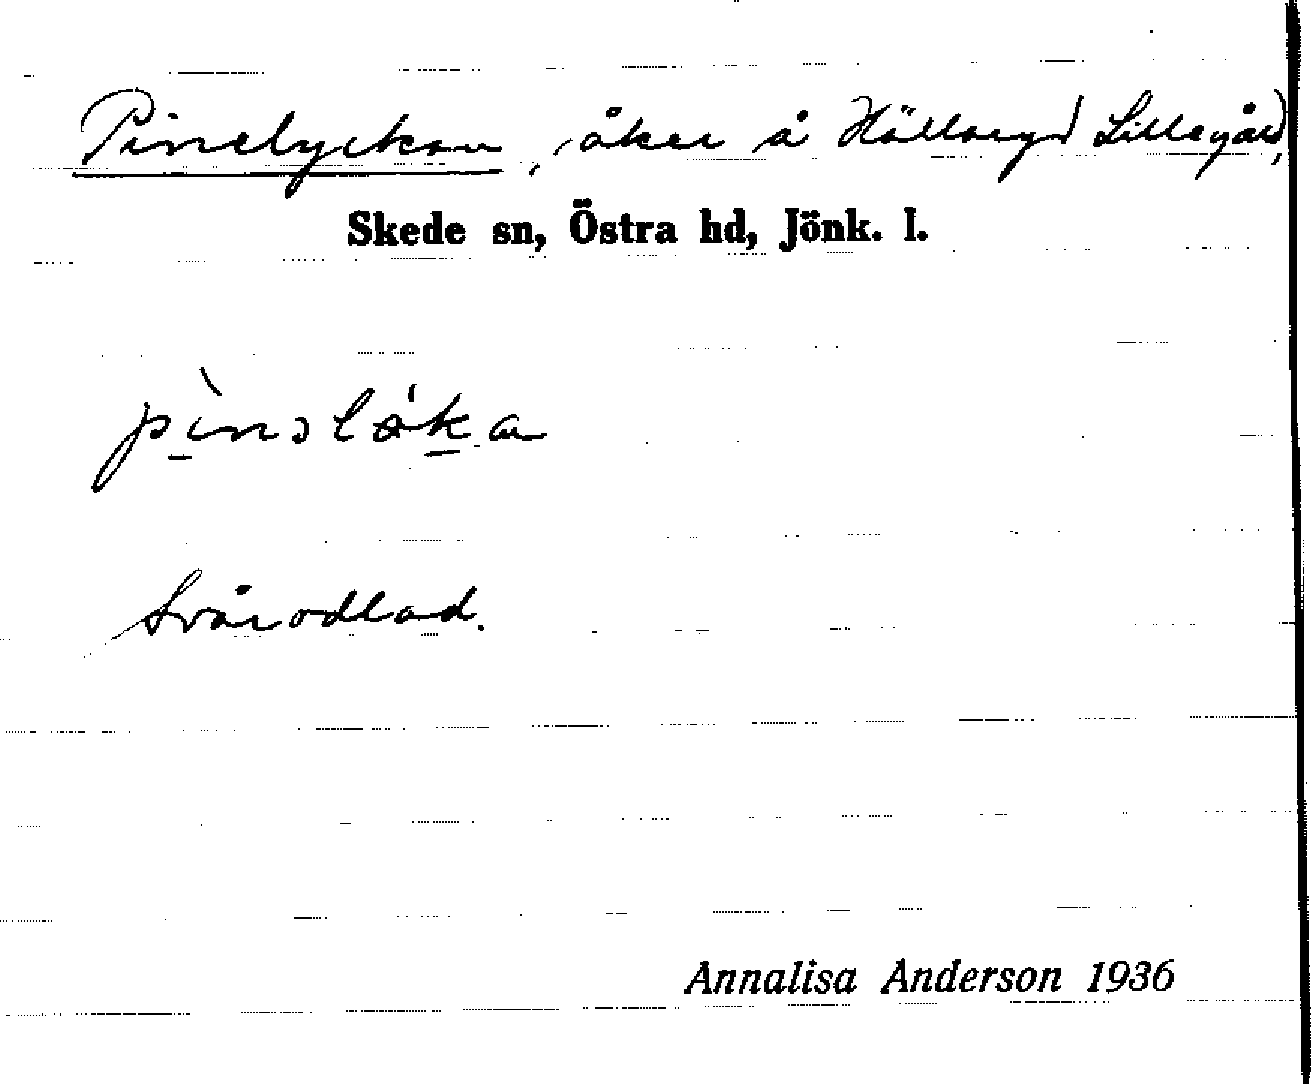 Pinelyckan, åker å Hälleryd Lillegård,
Skede sn, Östra hd, Jönk. l.
Svårodlad.
Annalisa Anderson 1936